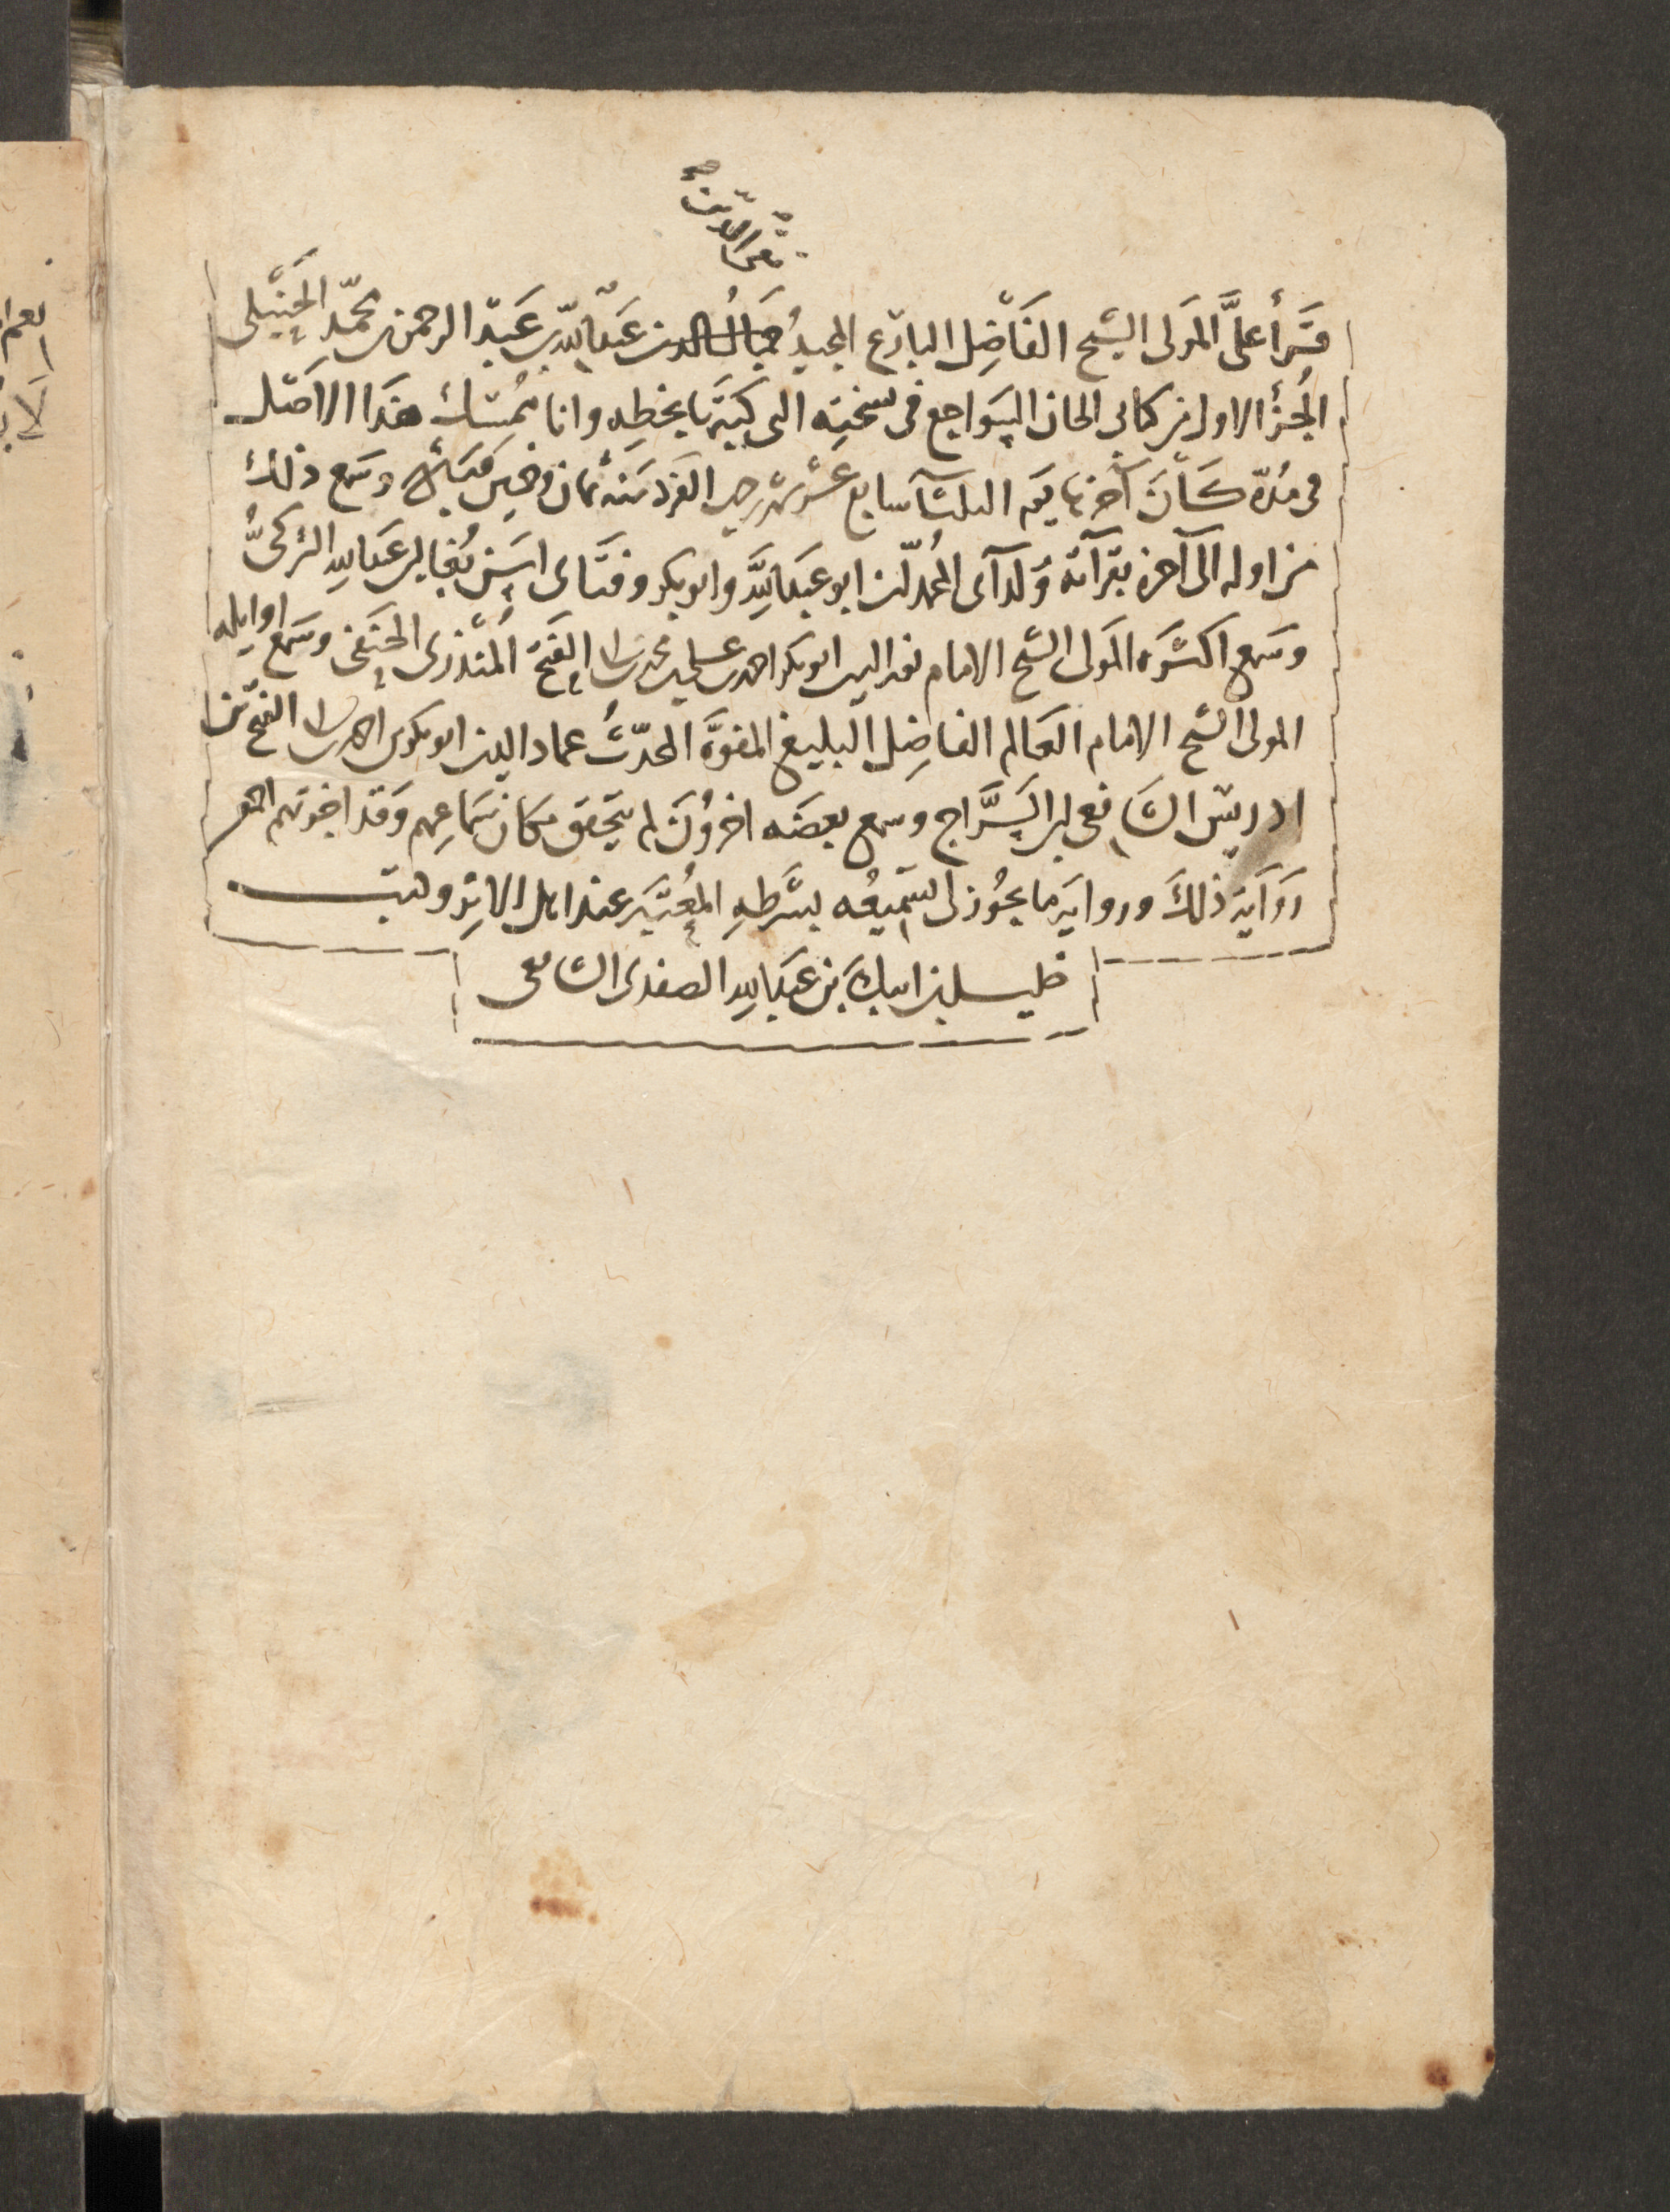 تقي الدين صح
قرأ علىَّ المولى الشيخ الفاضل البارع المجيد جمال الدين عبد الله بن عبد الرحمن بن محمد الحنبلي
الجزء الاول من كتابي الحان السواجع في نسخته التي كتبها بخطه وانا ممسك هذا الاصل
في مدة كان آخرها يوم الثلثا سابع عشر شهر رجب الفرد سنة ثمان وخمسين وسبع ماية وسمع ذلك
من اوله الى آخره بقرآته ولداي المحمدان ابو عبد الله وابو بكر وفتاي اسن بغا بن عبد الله التركي
وسمع اكثره المولى الشيخ الامام ابو بكر احمد بن علي بن محمد بن ابي الفتح المنذري الحنفي وسمع اوايله
المولى الشيخ الامام العالم الفاضل البليغ المفوّه المحدّث عماد الدين ابو بكر بن احمد بن ابي الفتح بن
ادريس الشافعي ابن السَّراج وسمع بعضه اخرون لم يتحقق مكان سماعهم وقد اجزتهم اجمع
رواية ذلك ورواية ما يجوز لي تسميعه بشرطه المعتبر عند اهل الاثر وكتب
خليل بن ايبك بن عبد الله الصفدي الشافعي